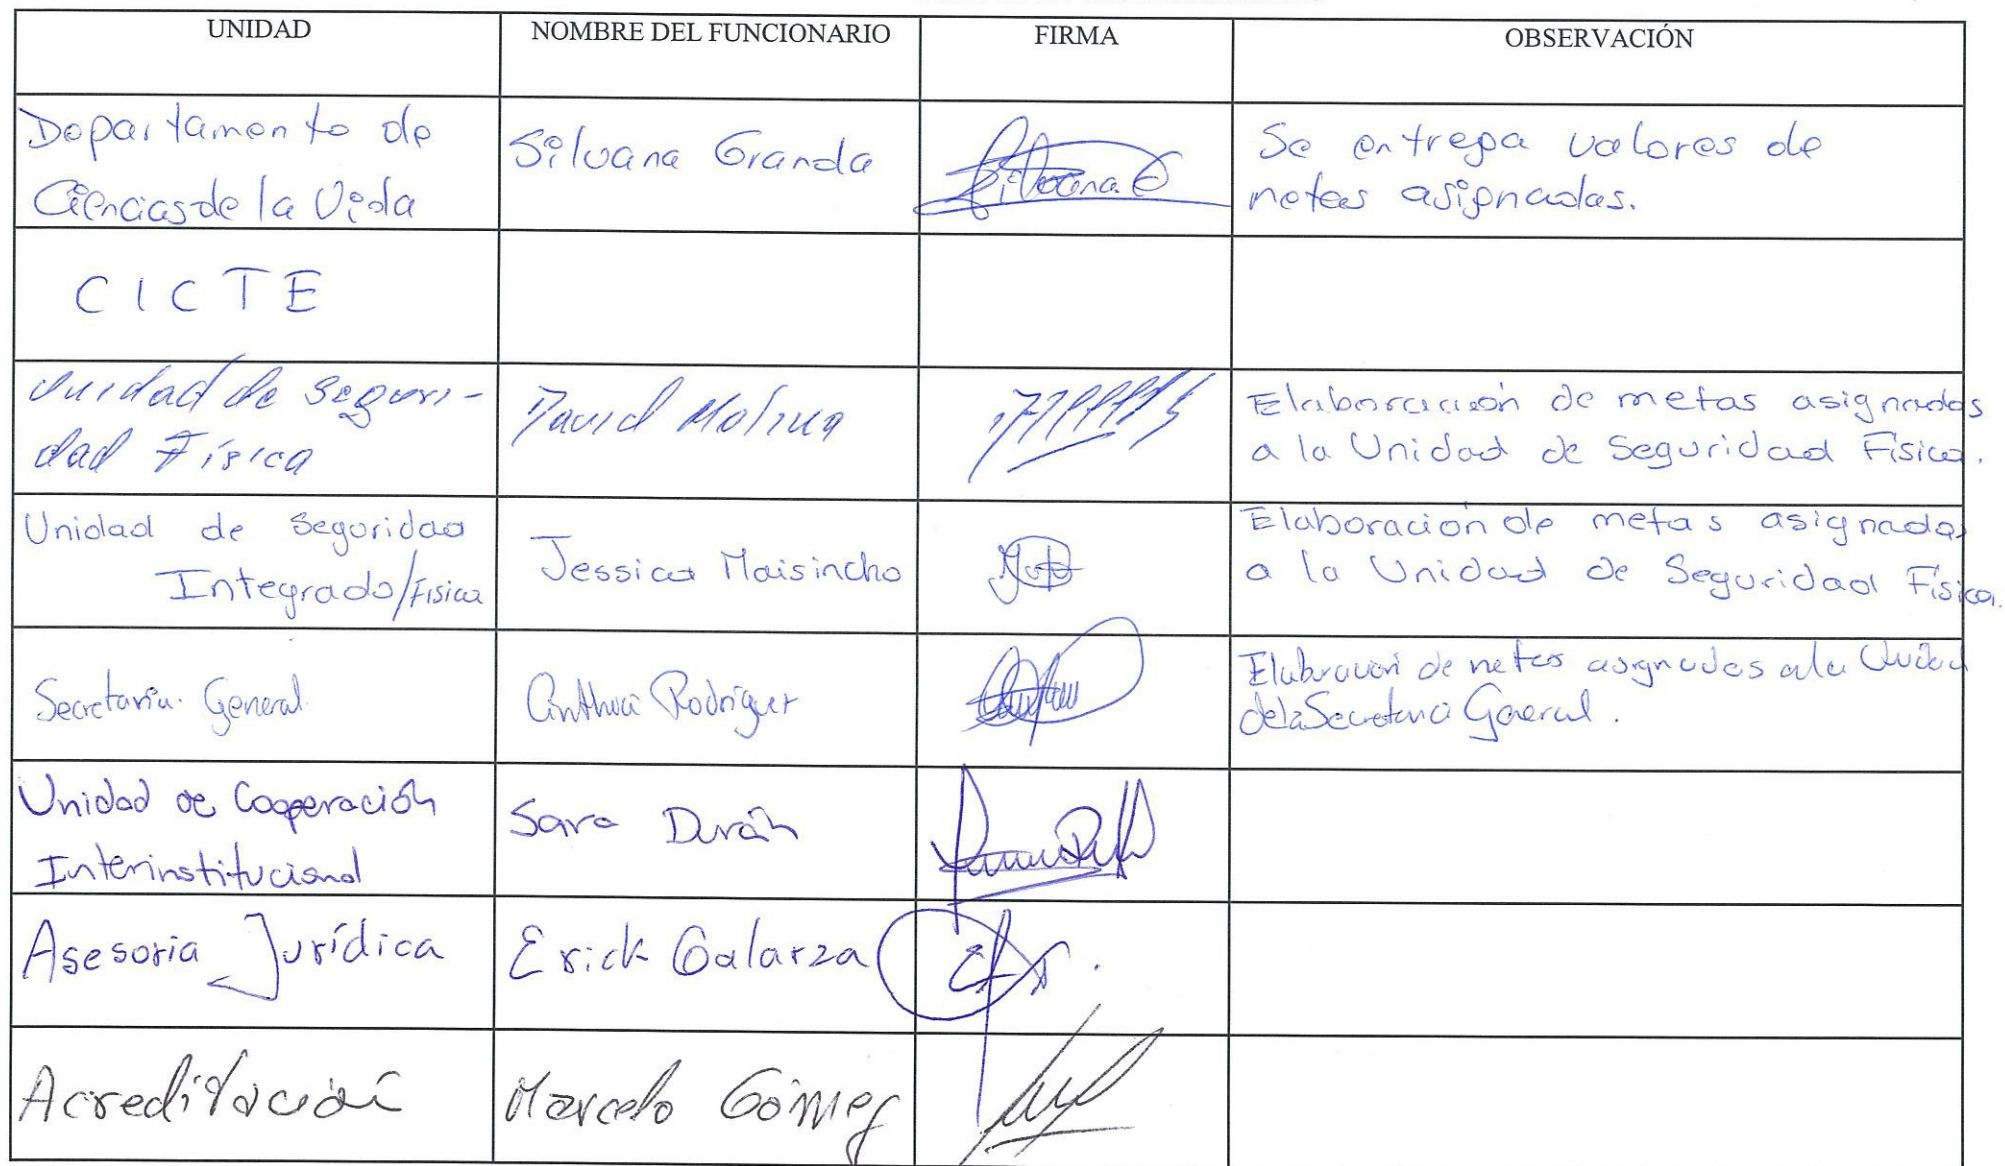 UNIDAD
NOMBRE DEL FUNCIONARIO
FIRMA
OBSERVACIÓN
Departamento de
Ciencias de la Vida
Silvana Granda
Silvana G
Se entrega valores de
metas asignadas.
CICTE
Unidad de Seguri-
dad Física
David Molina
Elaboración de metas asignadas
a la Unidad de Seguridad Física.
Unidad de Seguridad
Integrada/Física
Jessica Maisincho
Elaboración de metas asignadas
a la Unidad de Seguridad Física.
Secretaria General
Cinthia Rodríguez
Elaboración de metas asignadas a la Unidad
de la Secretaria General.
Unidad de Cooperación
Interinstitucional
Sara Durán
Asesoria Jurídica
Erick Galarza
Acreditación
Marcelo Gómez